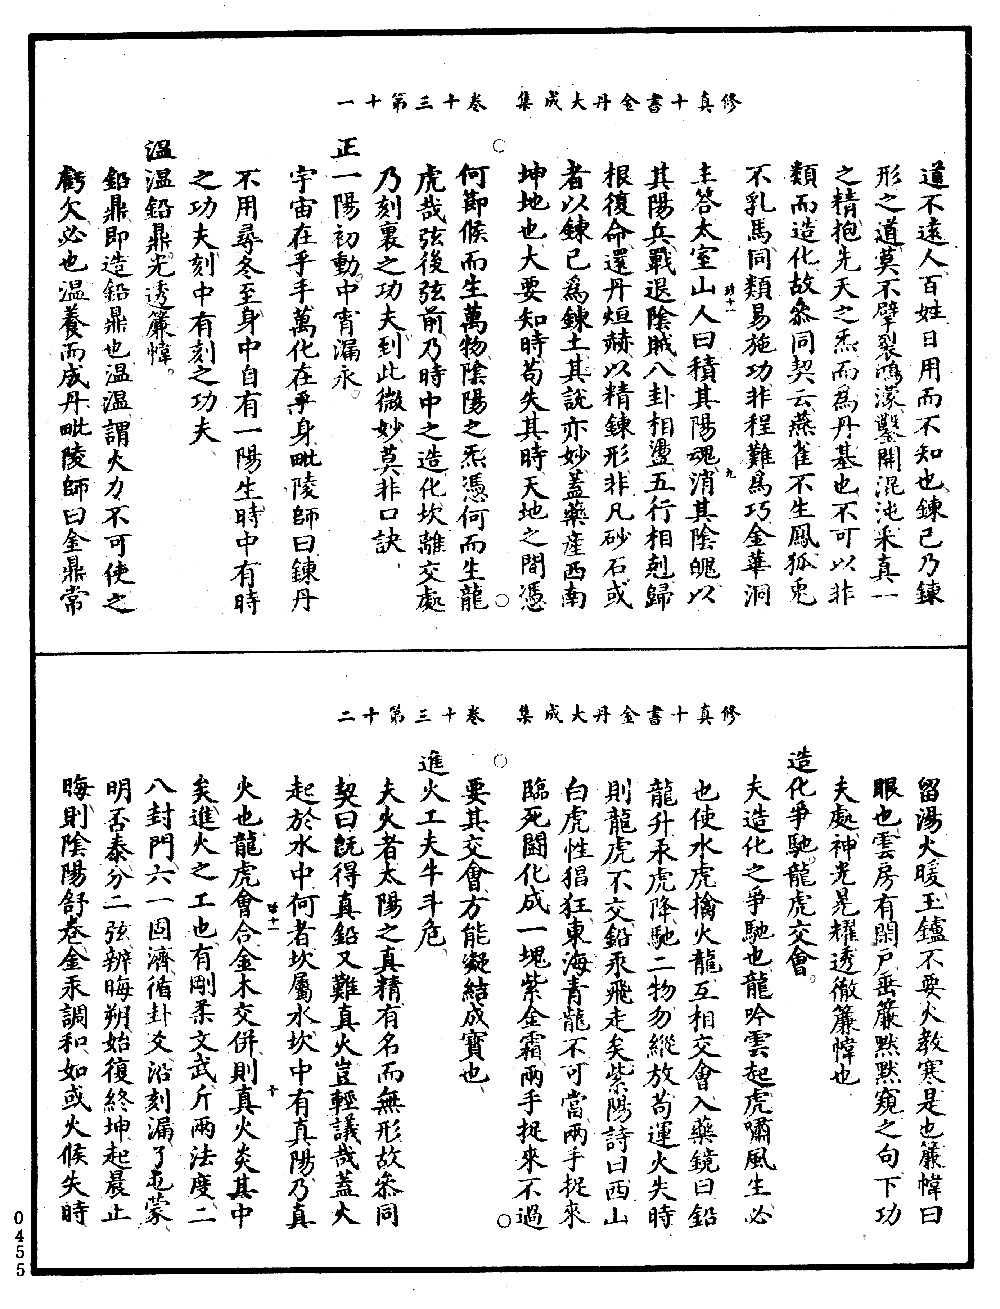 修真十書金丹大成集　卷十三第十一
道不遠人百姓日用而不知也鍊己乃鍊
形之道莫不擘裂鴻濛鑿開混沌采真一
之精抱先天之炁而為丹基也不可以非
類而造化故叅同契云燕雀不生鳳狐兎
不乳馬同類易施功非程難為巧金華洞
主答太室山人曰積其陽魂消其陰魄以
其陽兵戰退陰賊八卦相盪五行相剋歸
根復命還丹烜赫以精鍊形非凡砂石或
者以鍊己為鍊土其說亦妙蓋藥產西南
坤地也大要知時苟失其時天地之間憑
何節候而生萬物陰陽之炁憑何而生龍
虎哉弦後弦前乃時中之造化坎離交處
乃刻裏之功夫到此微妙莫非口訣
正一陽初動中宵漏永
宇宙在乎手萬化在乎身毗陵師曰鍊丹
不用尋冬至身中自有一陽生時中有時
之功夫刻中有刻之功夫
溫溫鉛鼎光透簾幃
鉛鼎即造鉛鼎也溫溫謂火力不可使之
虧欠必也溫養而成丹毗陵師曰金鼎常
修真十書金丹大成集　卷十三第十二
留湯火暖玉鑪不要火教寒是也簾幃曰
眼也雲房有閑戶垂簾默默窺之句下功
夫處神光晃耀透徹簾幃也
造化爭馳龍虎交會
夫造化之爭馳也龍吟雲起虎嘯風生必
也使水虎擒火龍互相交會入藥鏡曰鉛
龍升汞虎降馳二物勿縱放苟運火失時
則龍虎不交鉛汞飛走矣紫陽詩曰西山
白虎性猖狂東海青龍不可當兩手捉來
臨死鬭化成一塊紫金霜兩手捉來不過
要其交會方能凝結成寶也
進火工夫牛斗危
夫火者太陽之真精有名而無形故叅同
契曰旣得真鉛又難真火豈輕議哉蓋火
起於水中何者坎屬水坎中有真陽乃真
火也龍虎會合金木交併則真火炎其中
矣進火之工也有剛柔文武斤兩法度二
八封門六一固濟循卦爻沿刻漏了屯蒙
明否泰分二弦辨晦朔始復終坤起晨止
晦則陰陽舒卷金汞調和如或火候失時
0455